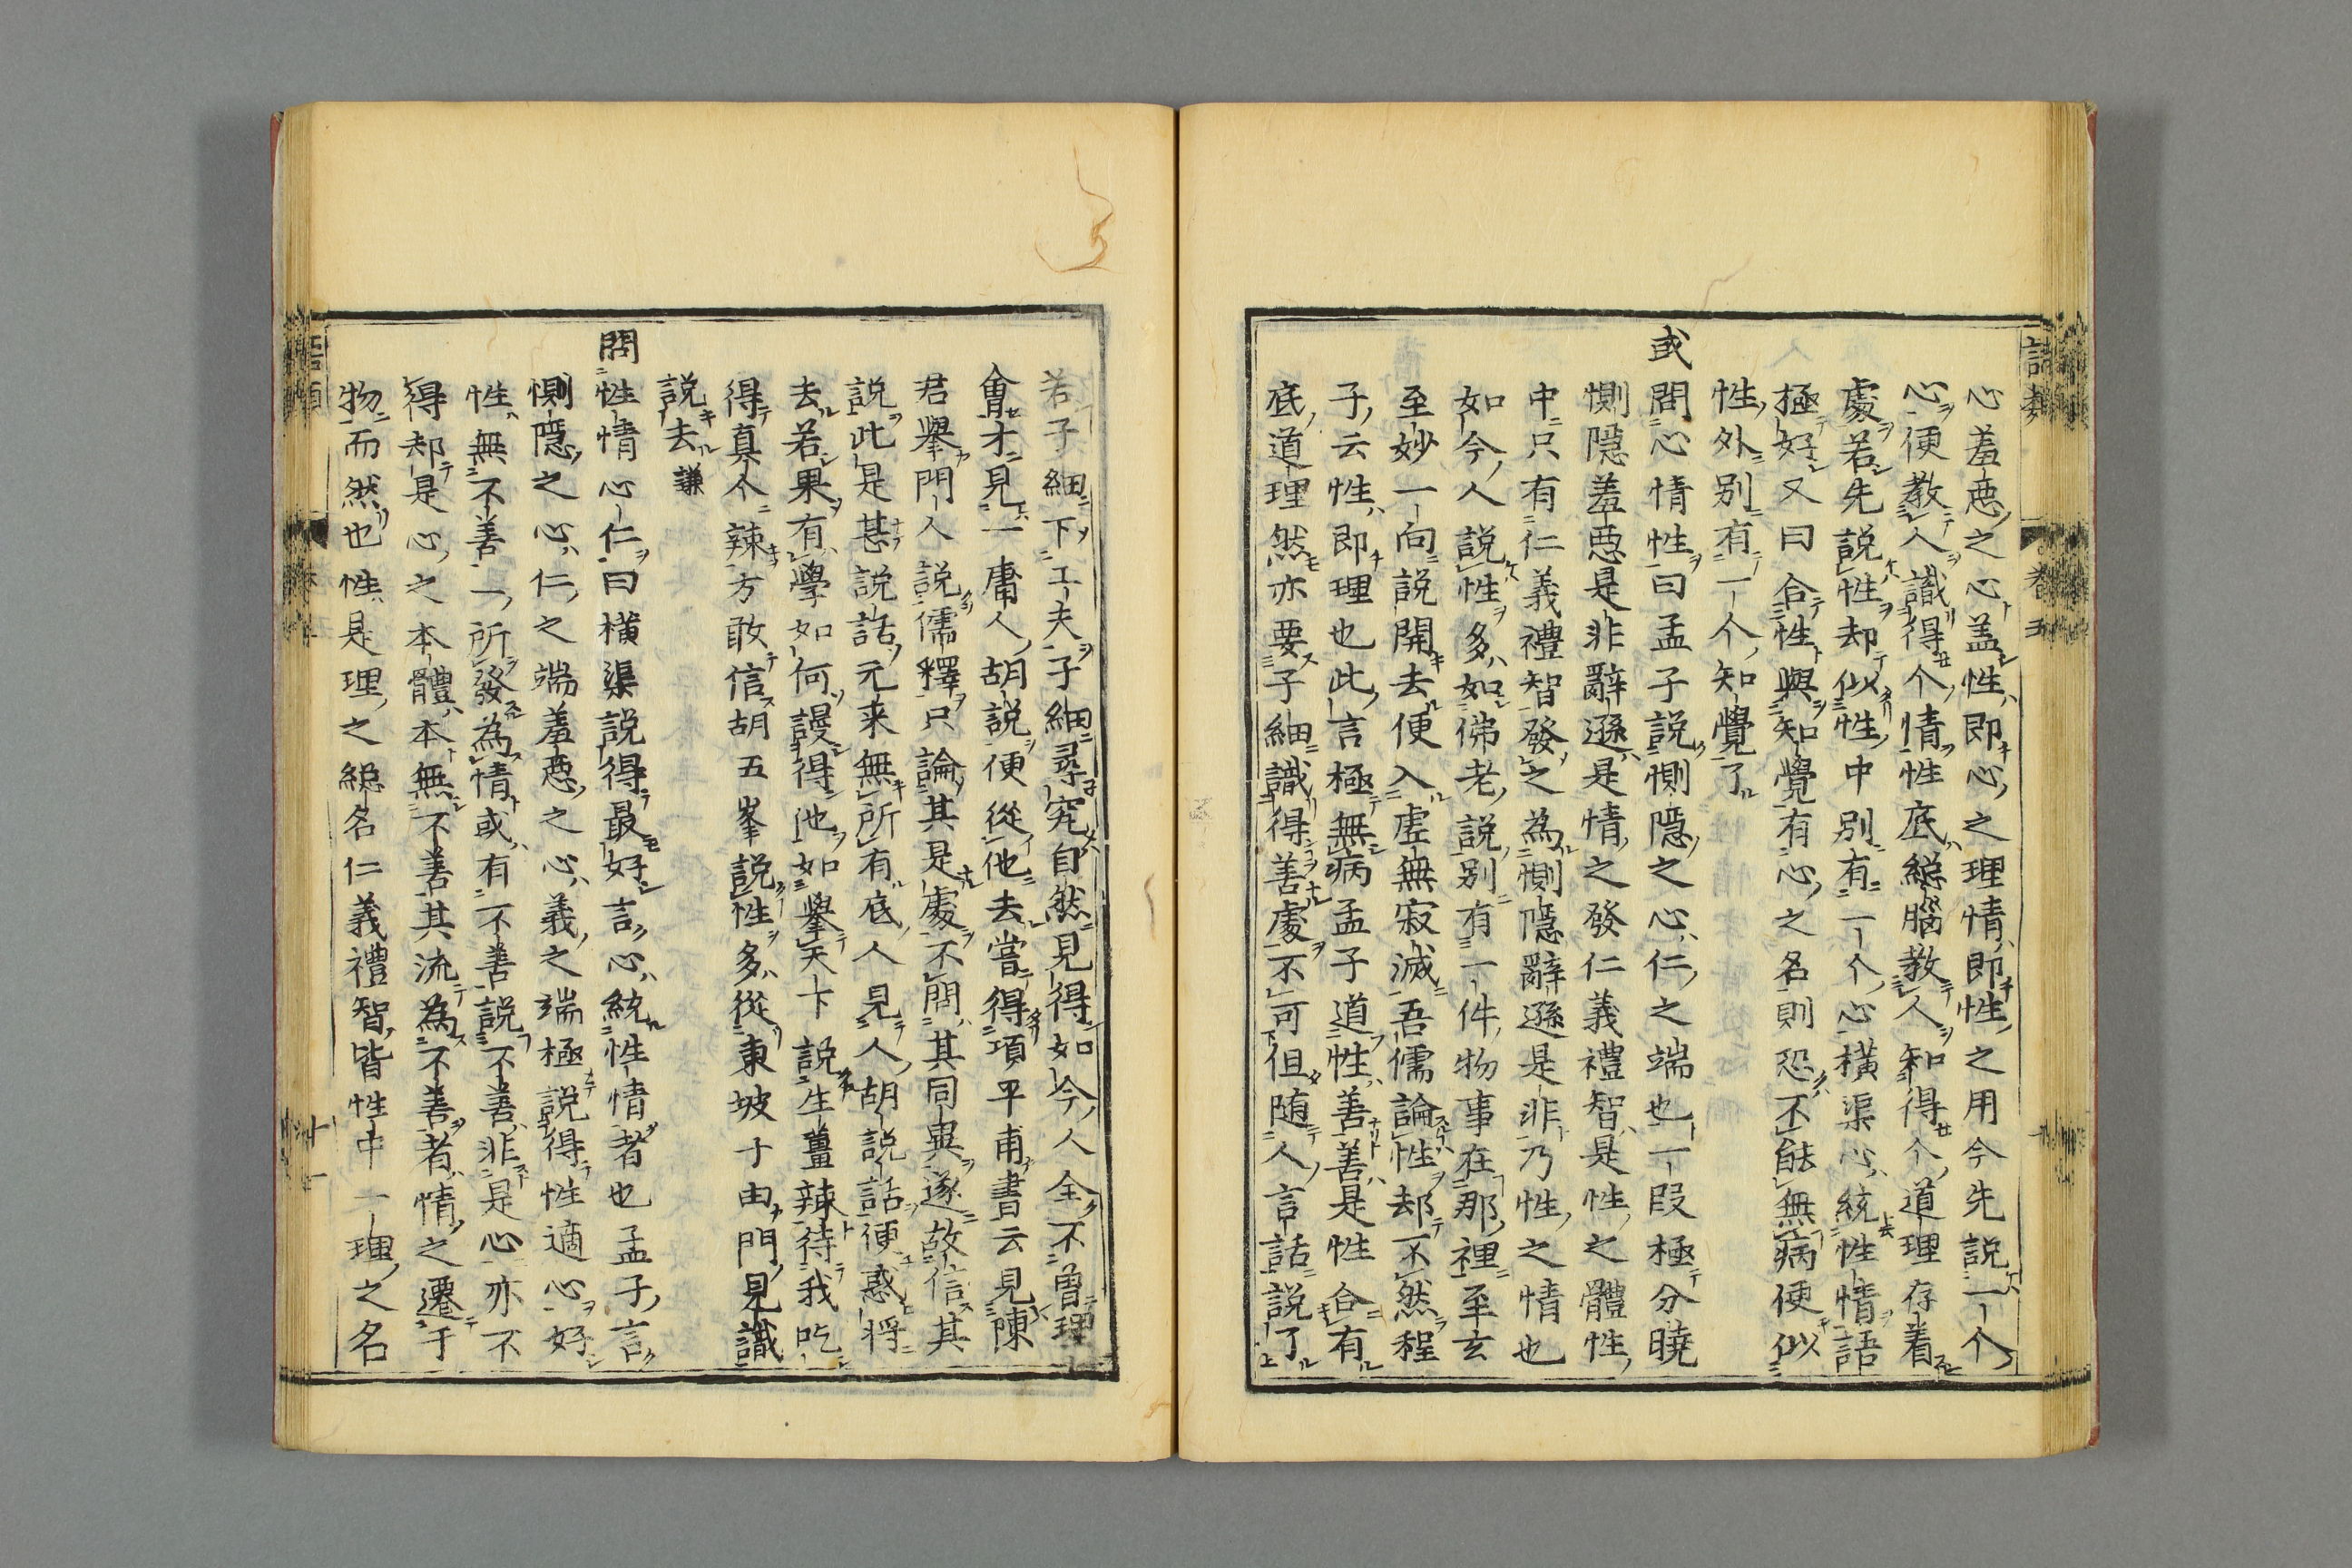 心羞惡之心盖性即心之理情即性之用今先説一个
心便教人識得个情性底緫腦教人知得个道理存着
處若先説性却似性中別有一个心横渠心統性情語
極好又曰合性與知覺有心之名則恐不能無病便似
性外別有一个知覺了
或問心情性曰孟子説惻隱之心仁之端也一段極分曉
惻隱羞惡是非辭遜是情之發仁義禮智是性之體性
中只有仁義禮智發之為惻隱辭遜是非乃性之情也
如今人説性多如佛老説別有一件物事在那裡至玄
至妙一向説開去便入虗無寂滅吾儒論性却不然程
子云性即理也此言極無病孟子道性善善是性合有
底道理然亦要子細識得善處不可但随人言話説了
若子細下工夫子細尋究自然見得如今人全不曽理
會才見一庸人胡説便從他去嘗得項平甫書云見陳
君舉門人説儒釋只論其是處不問其同異遂敬信其
説此是甚説話元来無所有底人見人胡説話便惑将
去若果有學如何謾得他如舉天下説生薑辣待我吃
得真个辣方敢信胡五峯説性多從東坡子由門見識
説去謙
問性情心仁曰横渠説得最好言心統性情者也孟子言
惻隱之心仁之端羞惡之心義之端極説得性適心好
性無不善一所發為情或有不善説不善非是心亦不
得却是心之本體本無不善其流為不善者情之遷于
物而然也性是理之緫名仁義禮智皆性中一理之名
語類
卷五
十一